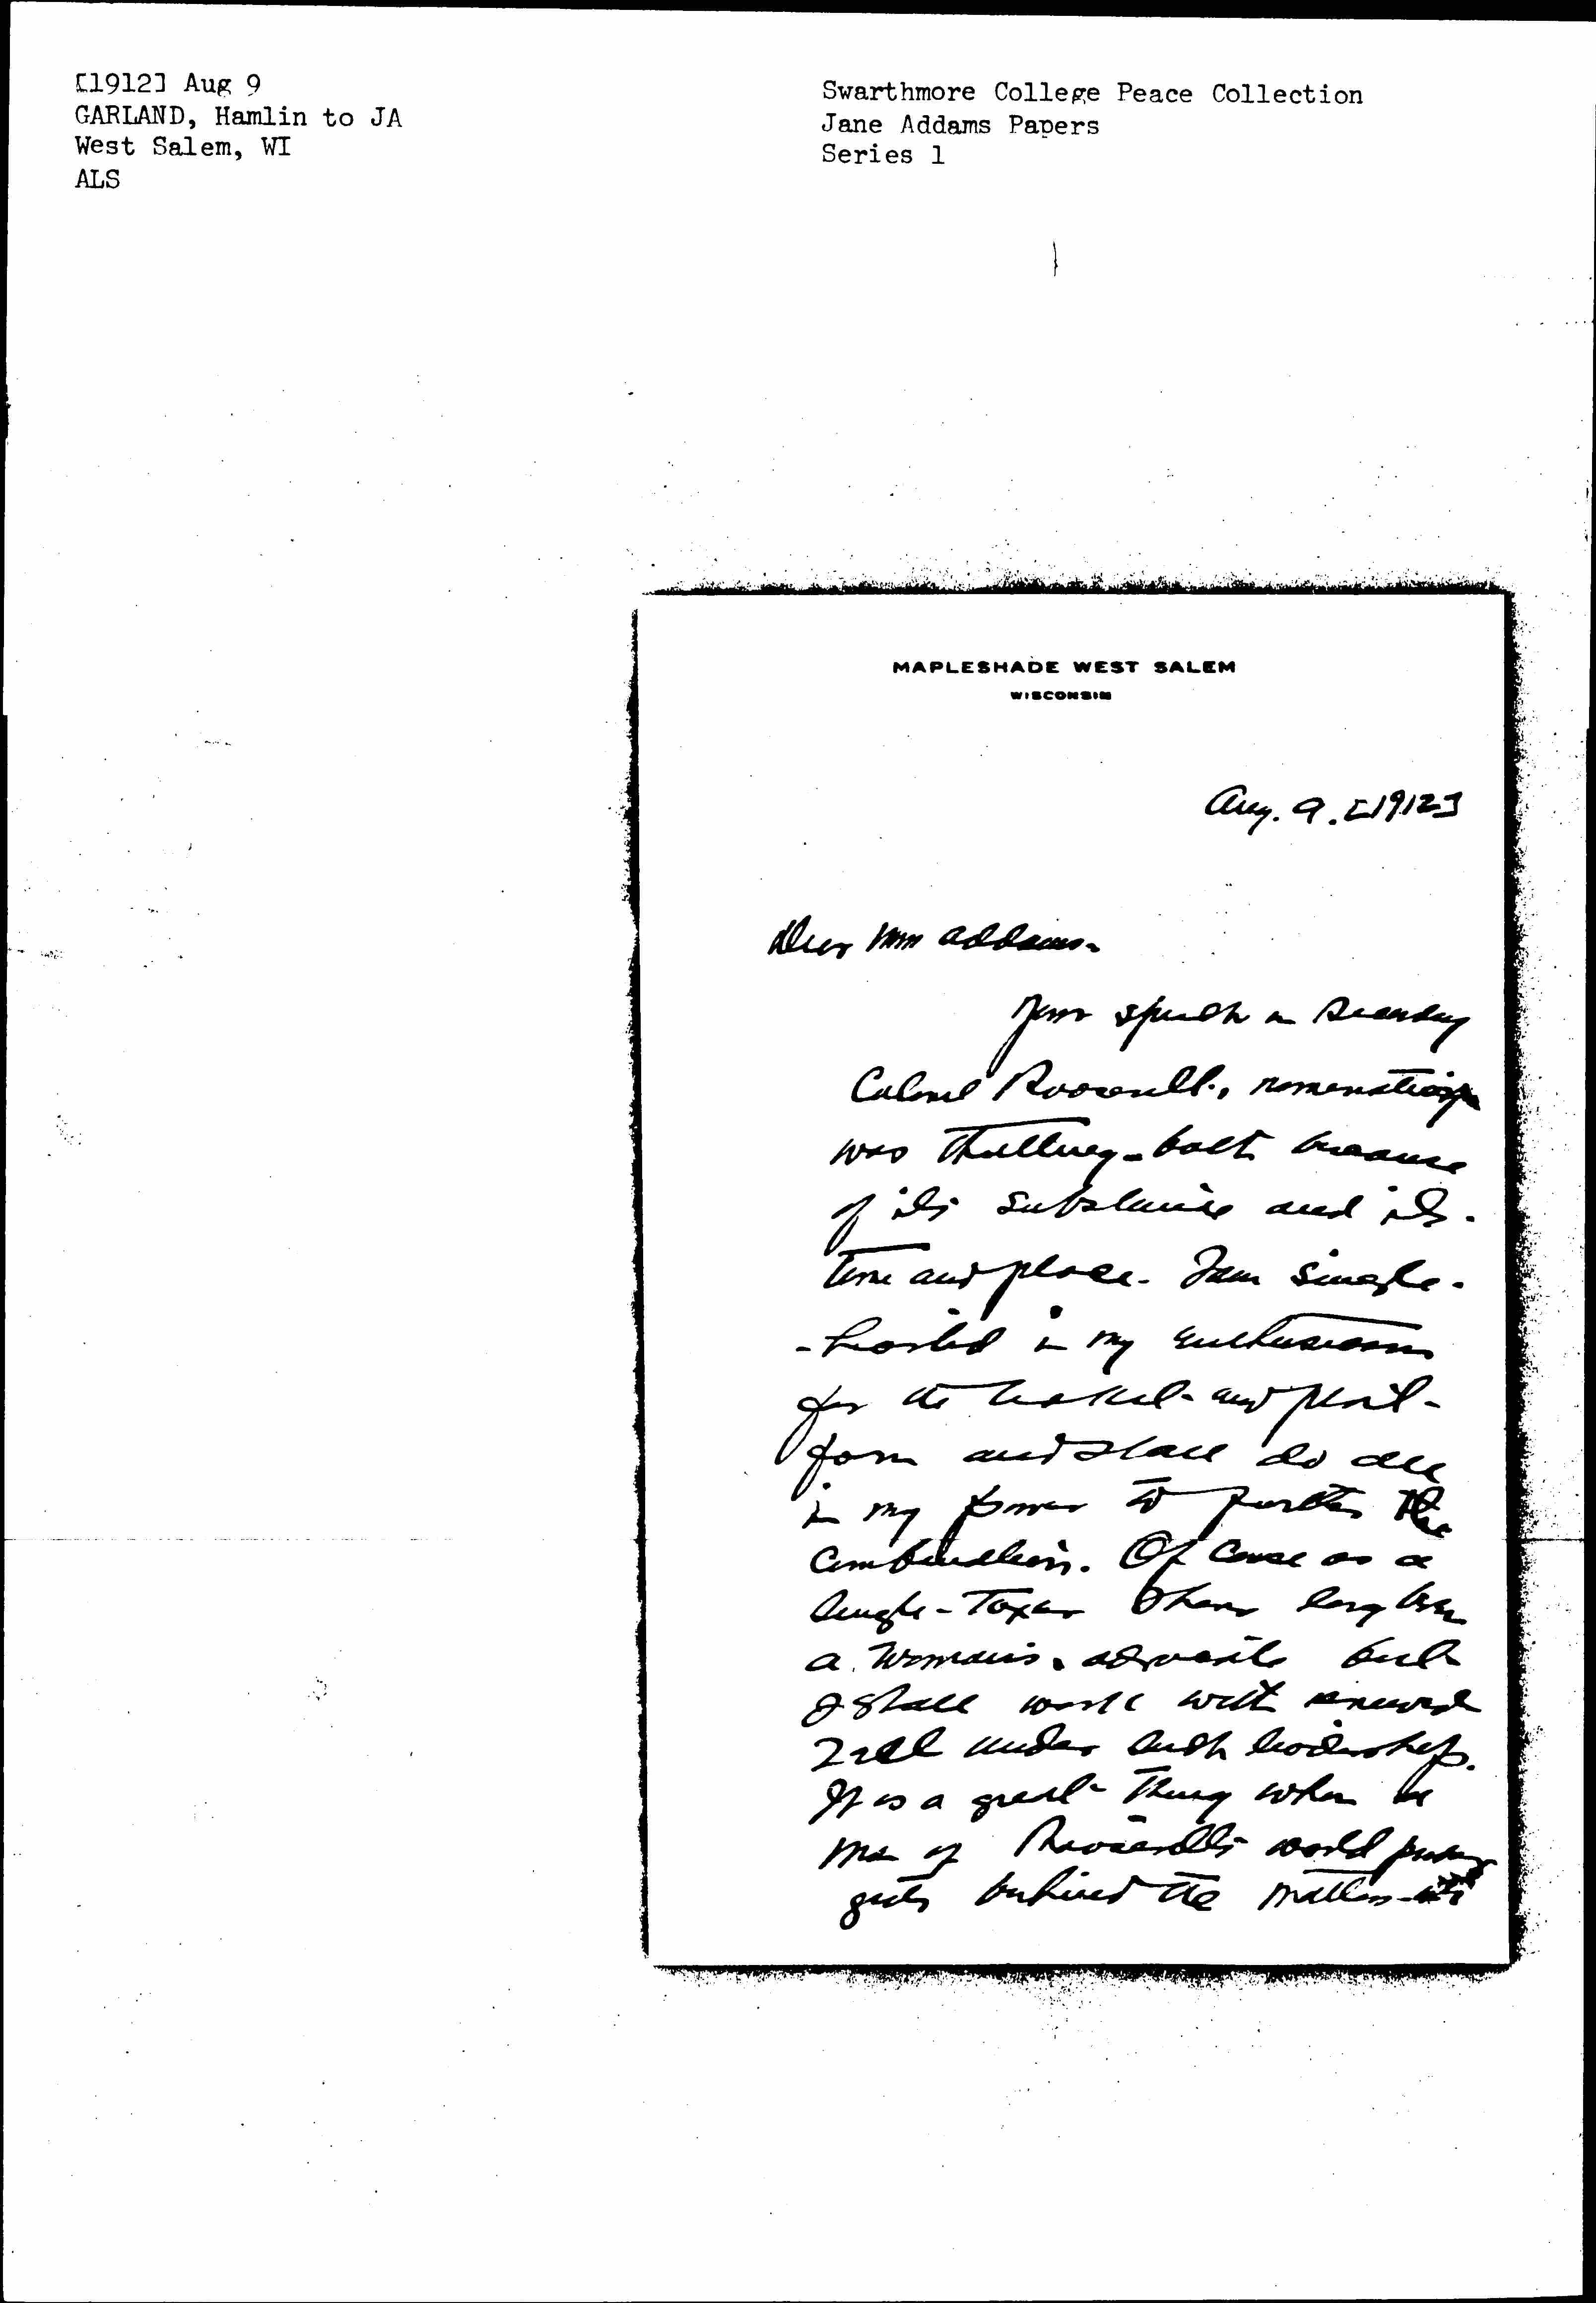 [1912] Aug 9
GARLAND, Hamlin to JA
West Salem, WI
ALS
Swarthmore College Peace Collection
Jane Addams Papers
Series 1
MAPLESHADE WEST SALEM
WISCONSIN
Aug. 9. [1912]
Dear Miss Addams-
Your speech in seconding
Colonel Roosevelt's nomination
was thrilling - both because
of its substance and its
time and place. I am single-
-hearted in my enthusiasm
for the ticket and plat-
form and shall do all
in my power to further the
combination. Of course as a
single-taxer I have long been
a woman's advocate but
I shall work with renewed
zeal under such leadership.
It is a great thing when a
man of Roosevelt's world power
gets behind the matter